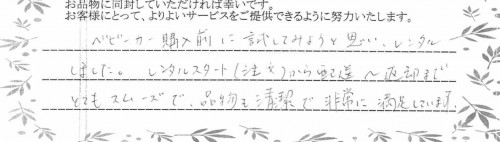 お品物に同封していただければ幸いです。
お客様にとって、よりよいサービスをご提供できるように努力いたします。
ベビーカー購入前に試してみようと思い、レンタル
しました。 レンタルスタート(注文)から配達〜返却まで
とてもスムーズで、品物も清潔で非常に満足しています。